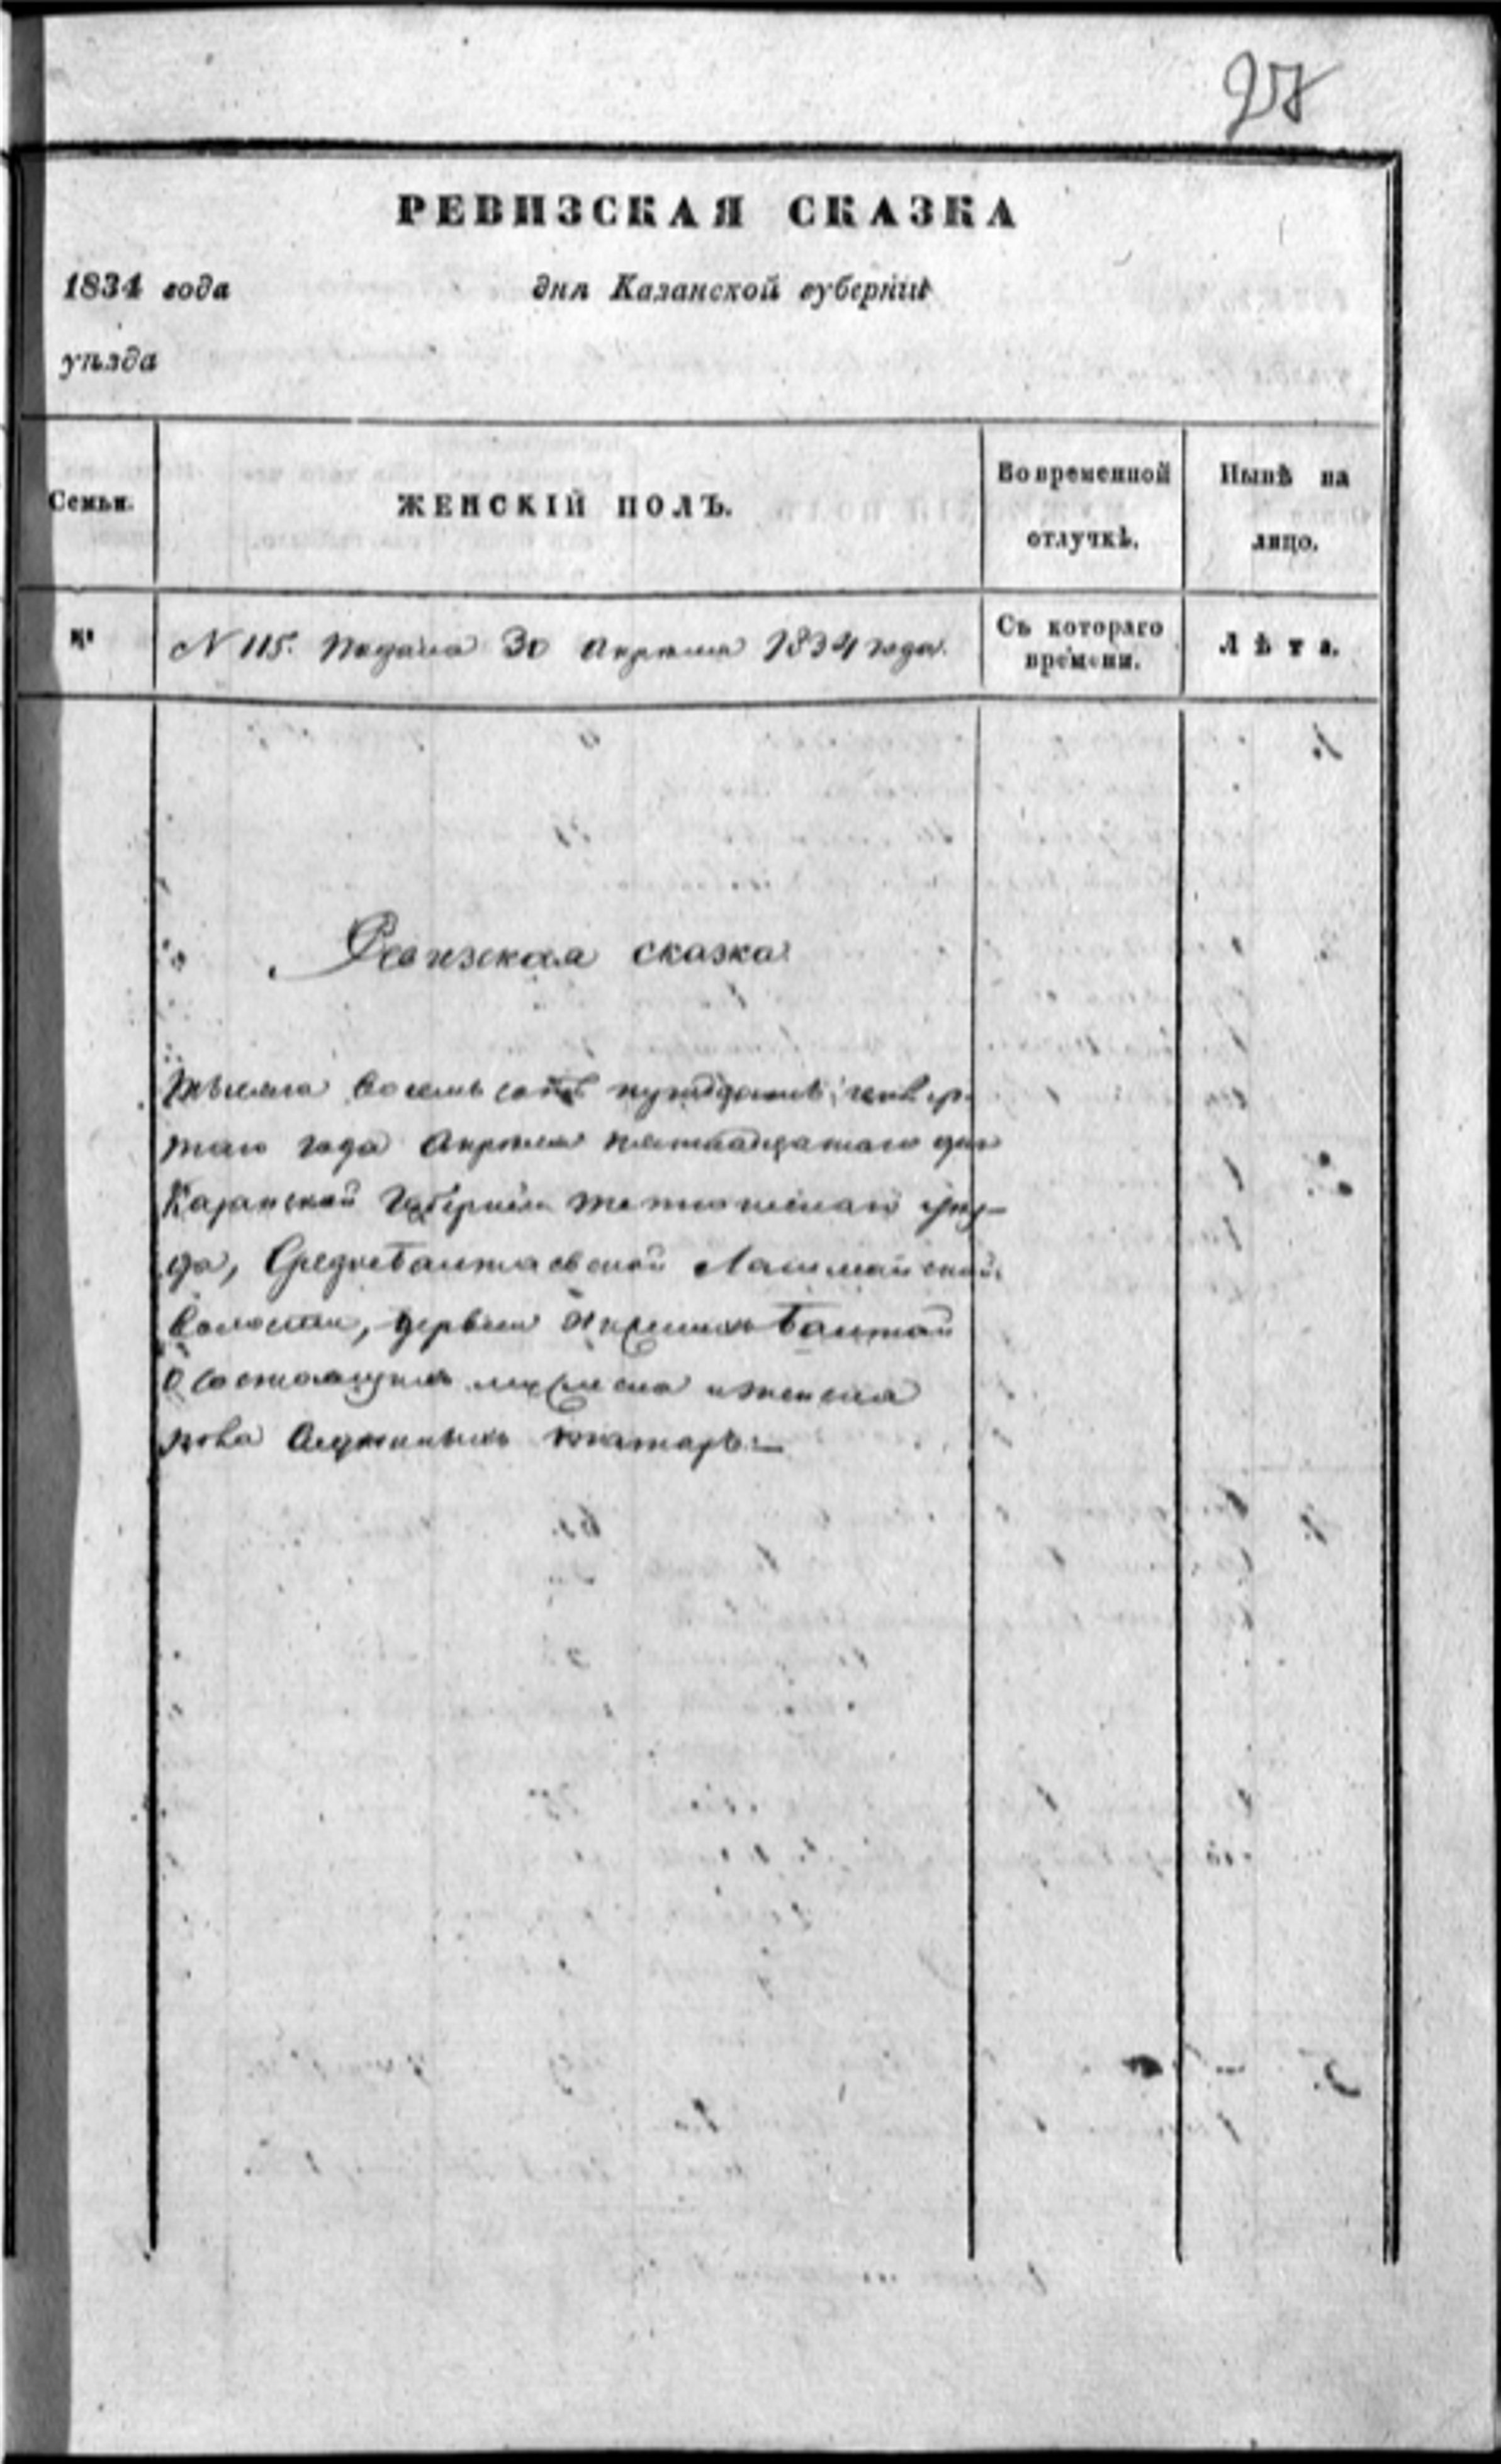 27
РЕВИЗСКАЯ СКАЗКА
1834 года дня Казанской губерніи
уѣзда
Семьи. ЖЕНСКІЙ ПОЛЪ. Во временной отлучкѣ. Нынѣ на лицо.
№ N 115. Подана 30 Апрѣля 1834 года. Съ котораго времени. Лѣта.
Ревизская сказка
Тысяча восемь сотъ тридцать четвер-
таго года Апрѣля пятнадцатаго дня
Казанской Губерніи Тетюшскаго уѣз-
да, Среднебалтаевской Лашманской
волости, деревни Балтай
О состоящихъ мужеска и женска
пола Служилыхъ татаръ.—